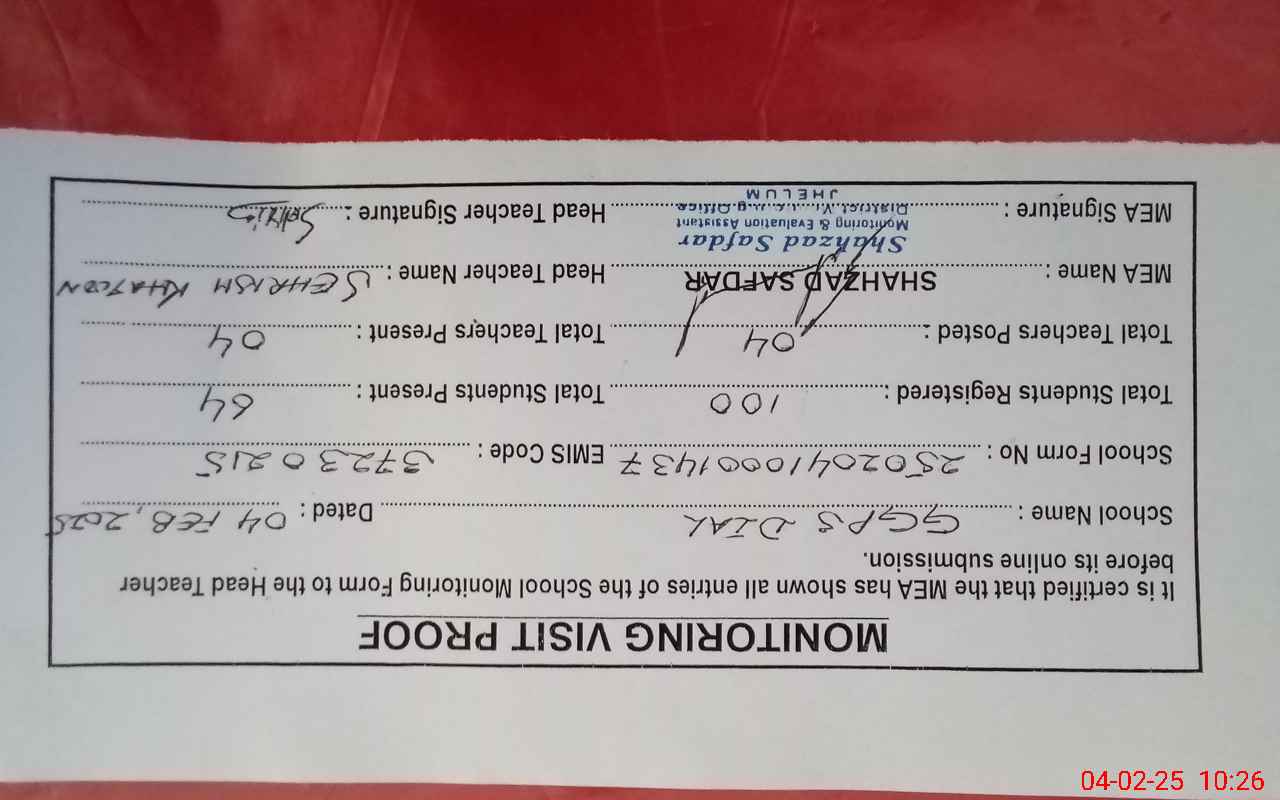 MONITORING VISIT PROOF
It is certified that the MEA has shown all entries of the School Monitoring Form to the Head Teacher
before its online submission.
School Name : GGPS DIAL Dated : 04 FEB, 2025
School Form No : 25020410001437 EMIS Code : 37230215
Total Students Registered : 100 Total Students Present : 64
Total Teachers Posted : 04 Total Teachers Present : 04
MEA Name : SHAHZAD SAFDAR Head Teacher Name : SEHRISH KHATOON
Shahzad Safdar
Monitoring & Evaluation Assistant
MEA Signature : District Office Head Teacher Signature :
JHELUM
04-02-25 10:26